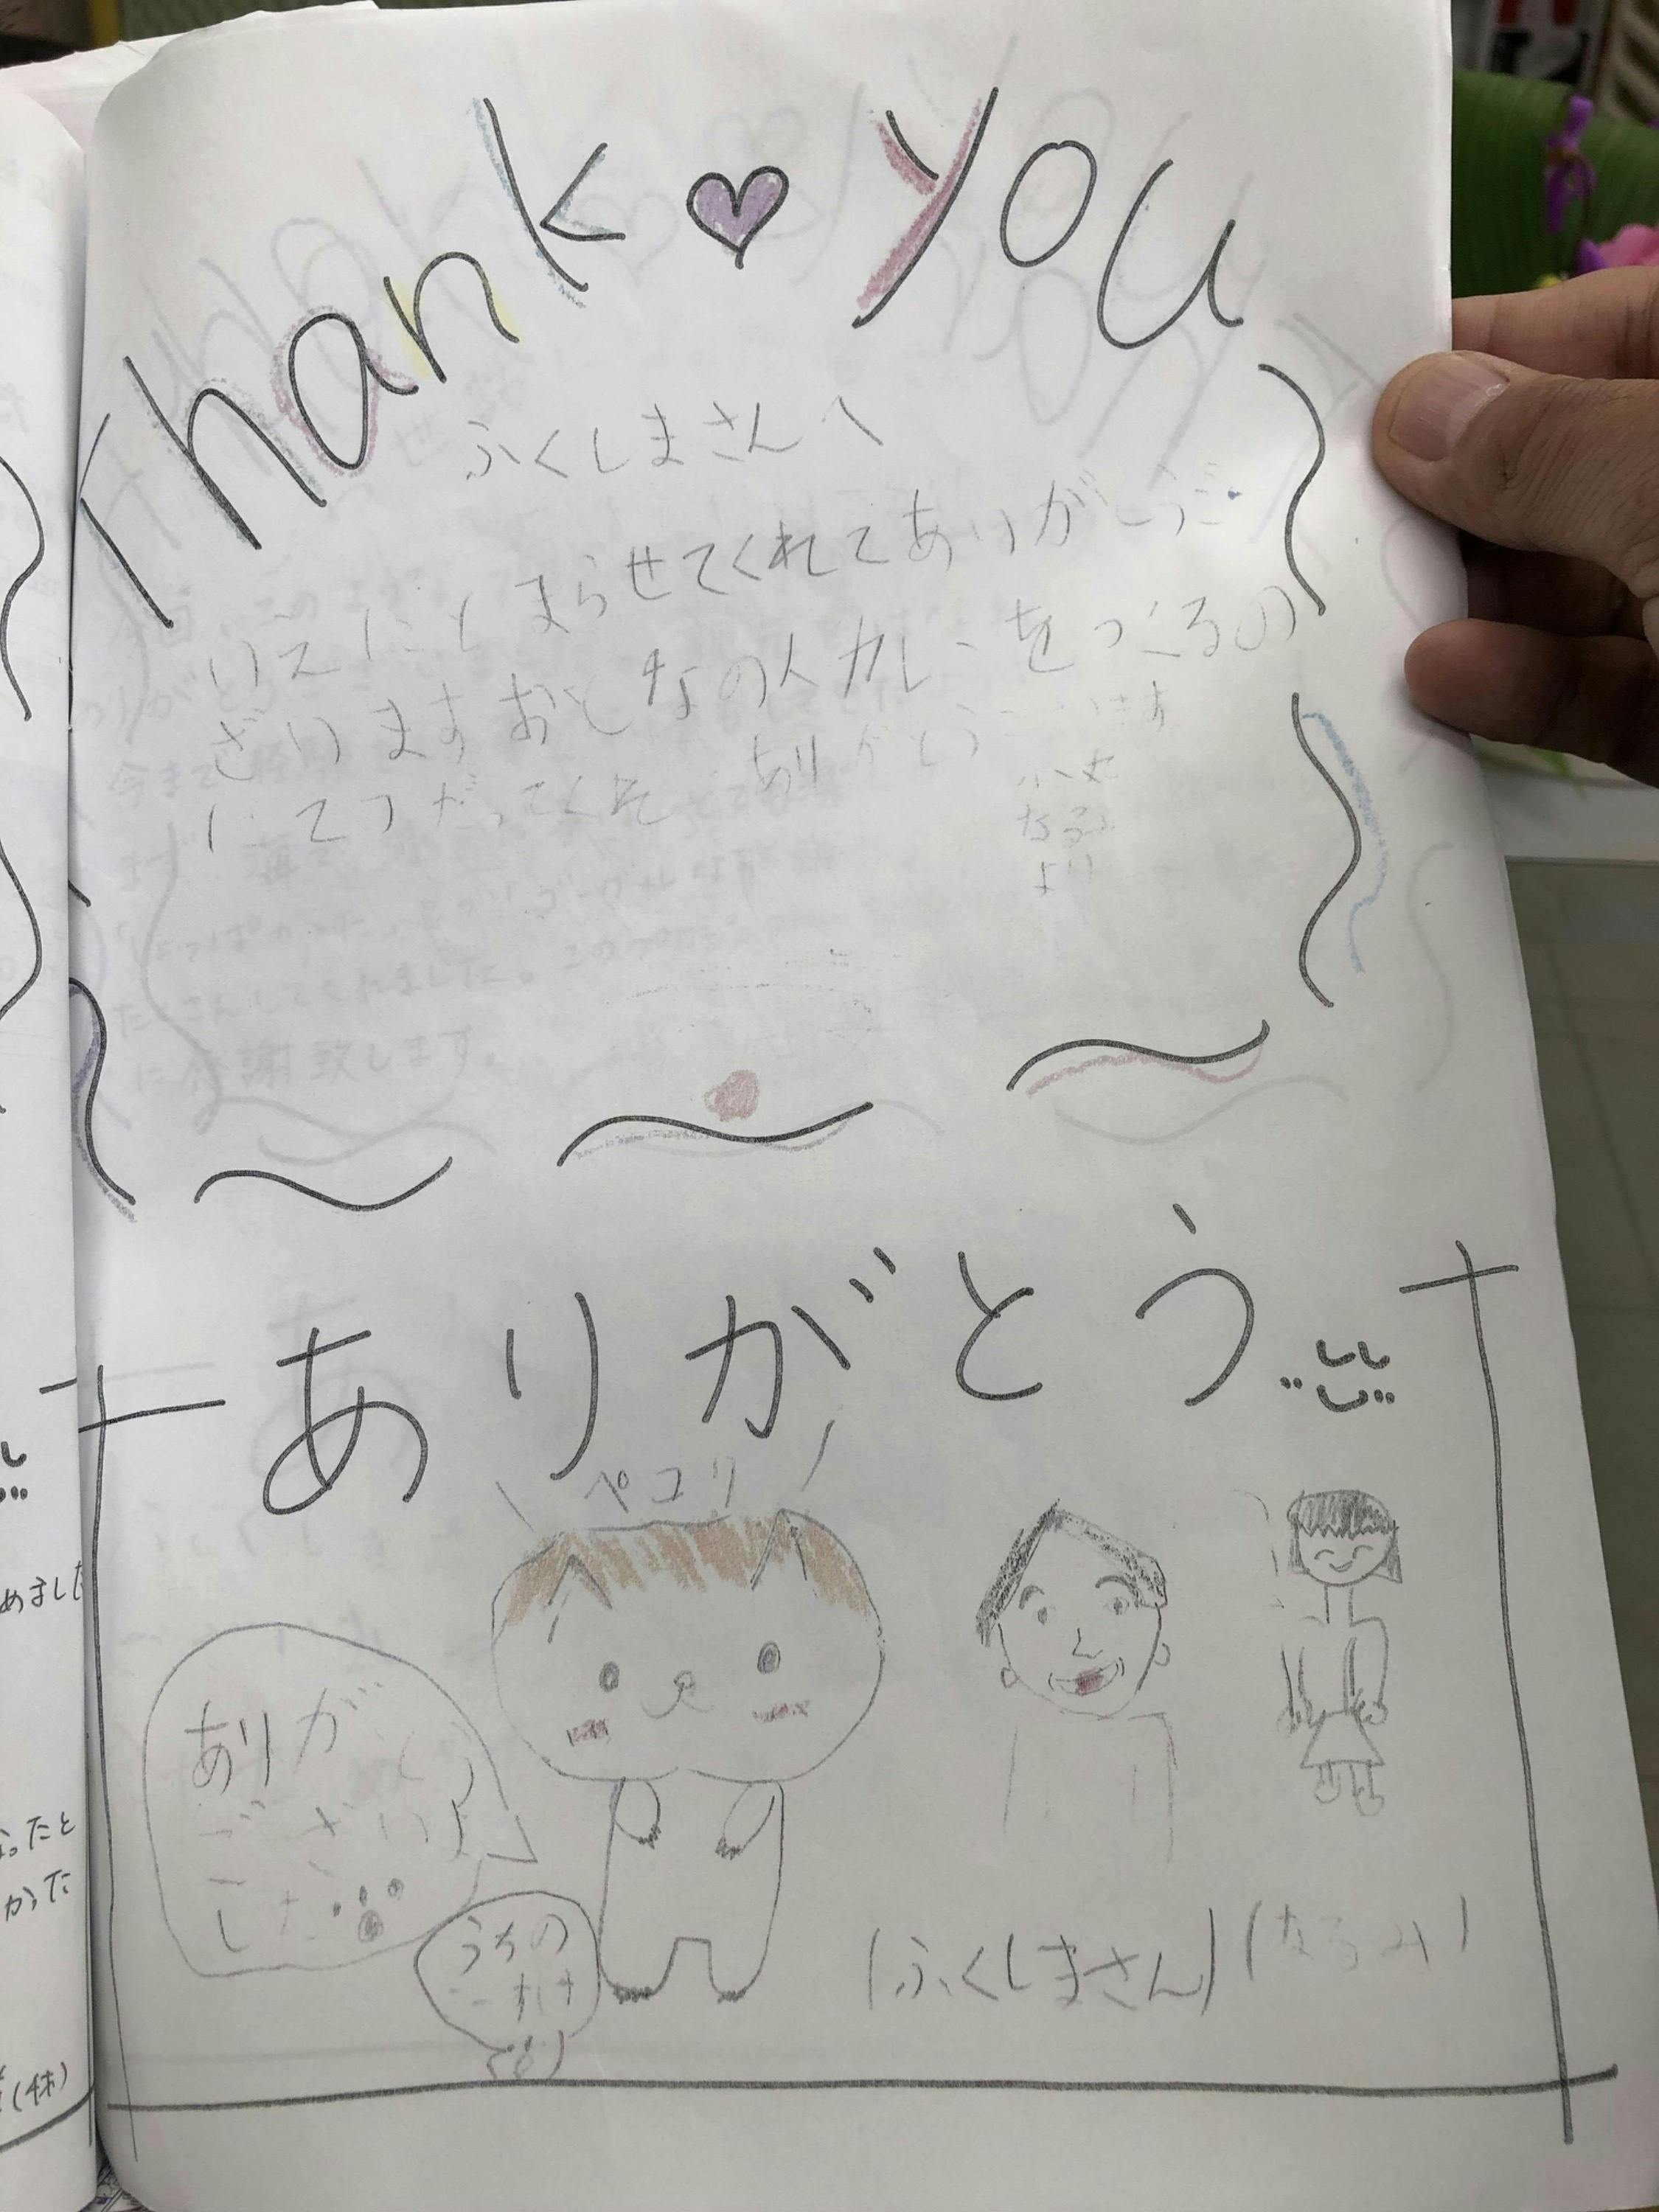 Thank ♥ you
ふくしまさんへ
いえにとまらせてくれてありがとうご
ざいますおとなの人カレーをつくるの
てつだってくれ ありがとうございます
なるみ
より
ありがとう
ペコリ
ありがとう
ございま
した
うちの
(ふくしまさん) (なるみ)
めました
ったと
かった
(休)